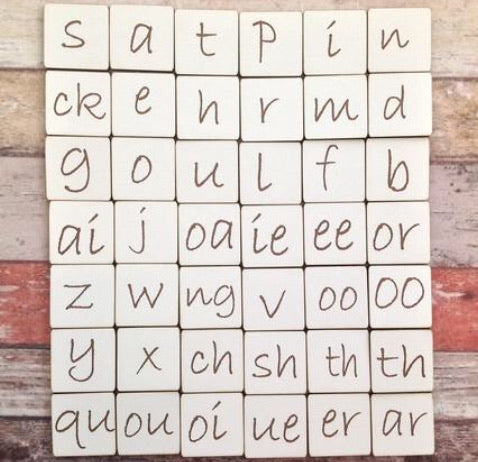 s a t p i n
ck e h r m d
g o u l f b
ai j oa ie ee or
z w ng v oo oo
y x ch sh th th
qu ou oi ue er ar